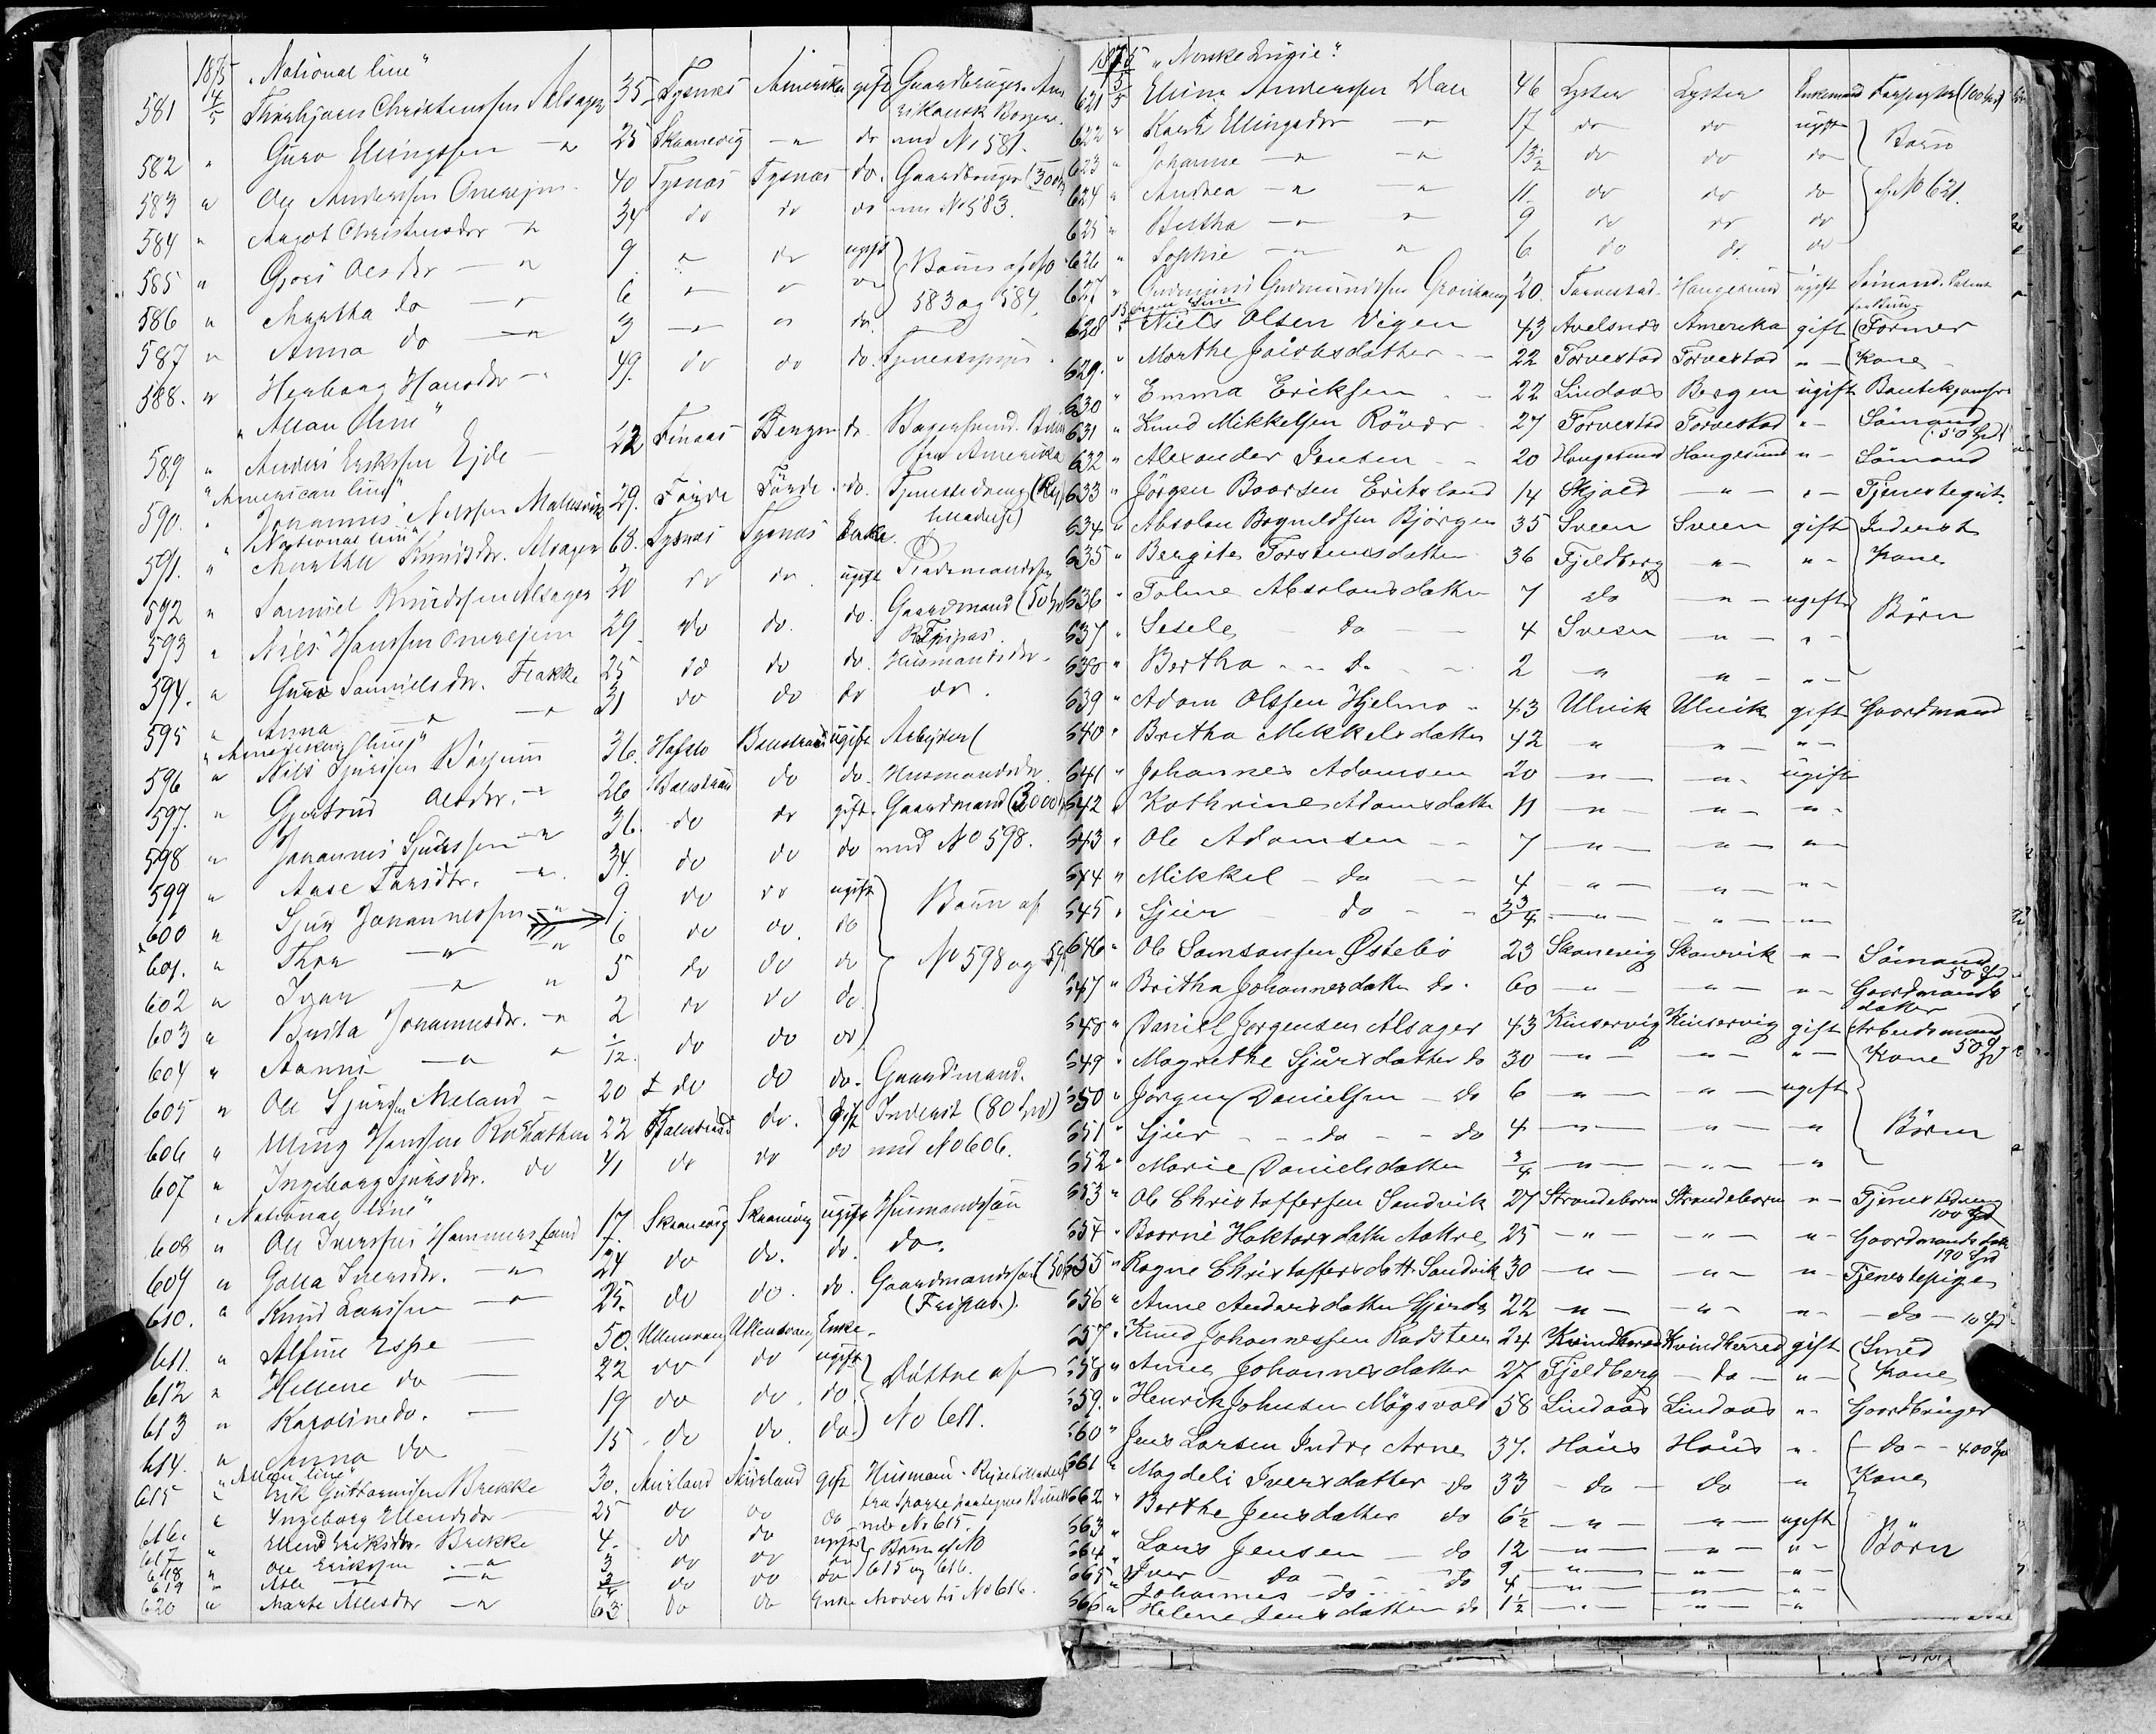 1875 "National line"
581 14/5 Thorbjørn Christensen Alsager 35 Tysnes Amerika gift Gaardbruger. Ame
rikansk Borger.
582 " Guro Ellingsen - " 25 Skaanevig - " do med No 581.
583 " Ole Andersen Onerejm 40 Tysnas Tysnas do. Gaardbruger (300
584 " Magot Christensdr - " 34 do do do med No 583.
585 " Gjøri Olesdr - " 9 " do ugift Børn af No
586 " Martha do - " 6 " " do 583 og 584.
587 " Anna do - " 3 - " " do.
588. " Herborg Hansdr - " 49. do do do. Tjenestepige
"Allan Line"
589 " Anders Eriksen Ejde - 22 Finaas Bergen do.
fra Amerika
"American line"
590. " Johannes Nilssen 29. Førde Førde do. Tjenestedreng
"National line"
591. " Martha Knudsdr. Alsager 68. Tysnas Tysnas Enke.
592 " Samuel Knudssen Alsager 20 do do ugift
593 " Nils Hanssen Onerejm 29 do do. do. Gaardmand (50
Fripas.
594. " Guro Samuelsdr. Flakke 25 do do do. Husmandsdr.
595 " Anna - " - " 31 do do do do.
596 " Nils Sjursen Børgum 36. Hafslo Balestrand ugift Arbejder
597. " Gjertrud Olesdr. - " 26 Balestrand do do. Husmandsdr
598 " Johannes Sjursen - " 36. do do gift. Gaardmand (3000
599 " Aase Larsdtr. - " 34. do do do med No 598.
600 " Sjur Johannessen - " 9 do do ugift Børn af
601. " Thor - " - " 6 do do. do No 598 og 599
602 " Ivar - " " 5 do do do
603 " Brita Johannesdr. - " 2 do do do
604 " Aanne - " " 1/12. do do do
605 " Ole Sjursen Meland - 20 do do do. Gaardmand.
606 " Elling Hanssen 22 Balestrand do. gift Inderst (80 Spd)
607 " Ingeborg Sjursdr. do 41 do do do med No 606.
"National line"
608 " Ole Iversen Hammersland 17. Skaanevig Skaanevig ugift Husmandssøn
609 " Golla Iversdr. - " 24 do do. do. do.
610. " Knud Larssen - " 25. do do. do. Gaardmandssøn (50
(Fripas.)
611. " Alfine Espe - 50. Ullensvang Ullensvang Enke.
612 " Hellene do - 22 do do ugift Døttre af
613 " Karoline do. - 19 do do. do No 611.
614. " Anna do 15 do do. do.
"Allan line"
615 " Erik Guttormsen Brekke 30. Aurland Aurland gift Husmand
616. " Ingeborg Ellendsdr 25 do do do med No 615.
617 " Ellend Eriksdr. Brekke 4. do do ugift Børn af No
618 " Ole Eriksen - " 3 do do do 615 og 616.
619 " Atle - " - " 3/4 do do do
620 " Marte Atlesdr - " 63 do do Enke Moder til No 616.
1875 "Norske Linie"
621 5/5 Elling Andersen Dale 46 Lyster Lyster Enkemand (100 Spd)
622 " Kari Ellingsdr - " 17 do do ugift Børn
623 " Johanne - " - " 13 1/2 do do do
624 " Andrea - " - " 11. do do do af No 621.
625 " Bertha - " " 9 do do do
626 " Sophie - " " 6 do do do
627 " Gudmund Gudmundssen Grønhaug 20. Torvestad Haugesund ugift Sømand.
628 " Niels Olsen Vigen 43 Avelsnes Amerika gift Farmer
629. " Marthe Jacobsdatter - - 22 Torvestad Torvestad " - Kone -
630 " Emma Eriksen - - 22 Lindaas Bergen ugift Boutikjomfru
631 " Knud Mikkelsen Røvær - 27 Torvestad Torvestad " - Sømand
(50 Spd)
632 " Alexander Jensen - - 20 Haugesund Haugesund " - Sømand
633 " Jørgen Baarsen Eriksland 14 Skjold - " - " - Tjenestegut
634 " Absolon Bognildsen Bjørgen 35 Sveen Sveen gift Inderst
635 " Bergite Torstensdatter 36 Fjeldberg - " - " - Kone
636 " Toline Absolonsdatter 7 do - " - ugift Børn
637 " Sesele - do - 4 Sveen - " - " -
638 " Bertha - - do - - 2 " " - " -
639 " Adam Olssen Hjelmo - 43 Ulvik Ulvik gift Gaardmand
640 " Britha Mikkelsdatter 42 " " - " -
641 " Johannes Adamsen 20 - " - - " - ugift
642 " Kathrine Adamsdatter 11 - " - - " - " -
643 " Ole Adamsen - - 7 - " - - " - " -
644 " Mikkel - do - - 4 " - - " - " -
645 " Sjur do - - 3/4 - " - - " - - " -
646 " Ole Samsonsen Østebø 23 Skonevig Skonevik " - Sømand
50 Spd
647 " Britha Johannesdatter do. 60 - " - - " - " - Gaardmands
datter
648 " Daniel Jørgensen Alsager 43 Kinservig Kinservig gift Arbeidsmand
50 Spd
649 " Magrethe Sjursdatter do 30 - " - - " - " - Kone
650 " Jørgen Danielsen - do 6 - " - - " - ugift
651 " Sjur - - do - - do 4 - " - - " - - " Børn
652 " Marie Danielsdatter 3/4 - " - - " - - "
653 " Ole Christoffersen Sandvik 27 Strandebarm Strandebarm " - Tjenestedreng
100 Spd
654 " Baarni Haktorsdatter Aakre 25 - " - - " - " - Gaardmandsdatt
190 Spd
655 " Ragne Christoffersdatt. Sandvik 30 - " - - " - " - Tjenestepige
656 " Anne Andersdatter Gjerde 22 - " - - " - " - - do - 10 Spd
657 " Knud Johannessen Radsteen 24 Kvindherred Kvindherred gift Smed
658 " Anne Johannesdatter 27 Fjeldberg - do - " - Kone
659. " Henrik Johnsen Mågsvold 58 Lindaas Lindaas " - Gaardbruger
660 " Jens Larsen Indre Arne 37. Haus Haus " - - do - - 400 Spd
661 " Magdeli Iversdatter do 33 - do - do " Kone
662 " Berthe Jensdatter do 6 1/2 - " - - " - ugift
663 " Lars Jensen - do 12 - " - - " - " - Børn
664 " Iver - do - - do 9 - " - - " - " -
665 " Johannes - do - - do 4 - " - - " - " -
666 " Helene Jensdatter do 1 1/2 - " - - " - - "